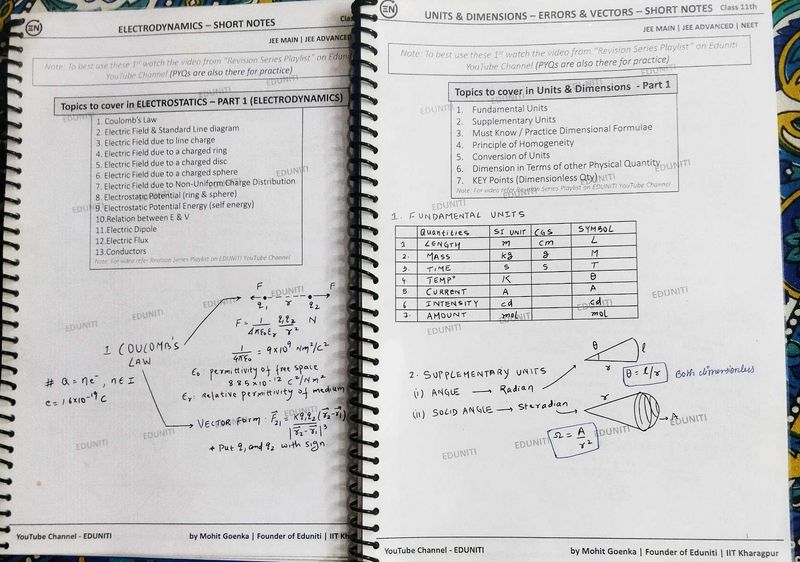 EN
ELECTRODYNAMICS – SHORT NOTES
JEE MAIN | JEE ADVANCED
Note: To best use these 1st watch the video from "Revision Series Playlist" on Eduniti
YouTube Channel (PYQs are also there for practice)
Topics to cover in ELECTROSTATICS – PART 1 (ELECTRODYNAMICS)
1. Coulomb's Law
2. Electric Field & Standard Line diagram
3. Electric Field due to line charge
4. Electric Field due to a charged ring
5. Electric Field due to a charged disc
6. Electric Field due to a charged sphere
7. Electric Field due to Non-Uniform Charge Distribution
8. Electrostatic Potential (ring & sphere)
9. Electrostatic Potential Energy (self energy)
10.Relation between E & V
11.Electric Dipole
12.Electric Flux
13.Conductors
Note: For video refer Revision Series Playlist on EDUNITI YouTube Channel
F F
q1 r q2
F = 1/4πε0εr q1q2/r² N
1/4πε0 = 9×10⁹ Nm²/C²
1 COULOMB'S
LAW
ε0: permittivity of free space
8.85×10⁻¹² C²/Nm²
εr: relative permittivity of medium
# Q = ne⁻, n∈I
e = 1.6×10⁻¹⁹ C
VECTOR FORM: F⃗21 = Kq1q2(r⃗2-r⃗1)/|r⃗2-r⃗1|³
* Put q1 and q2 with sign
EDUNITI
YouTube Channel - EDUNITI
by Mohit Goenka | Founder of Eduniti | IIT
EN
UNITS & DIMENSIONS – ERRORS & VECTORS – SHORT NOTES Class 11th
JEE MAIN | JEE ADVANCED | NEET
Note: To best use these 1st watch the video from "Revision Series Playlist" on Eduniti
YouTube Channel (PYQs are also there for practice)
Topics to cover in Units & Dimensions - Part 1
1. Fundamental Units
2. Supplementary Units
3. Must Know / Practice Dimensional Formulae
4. Principle of Homogeneity
5. Conversion of Units
6. Dimension in Terms of other Physical Quantity
7. KEY Points (Dimensionless Qty)
Note: For video refer Revision Series Playlist on EDUNITI YouTube Channel
1. FUNDAMENTAL UNITS
Quantities SI UNIT CGS SYMBOL
1 LENGTH m cm L
2. MASS kg g M
3. TIME s s T
4 TEMP° K θ
5 CURRENT A A
6 INTENSITY cd cd
7. AMOUNT mol mol
2. SUPPLEMENTARY UNITS
(i) ANGLE → Radian
θ l r
θ = l/r Both dimensionless
(ii) SOLID ANGLE → Steradian
r A
Ω = A/r²
EDUNITI
1
YouTube Channel - EDUNITI
by Mohit Goenka | Founder of Eduniti | IIT Kharagpur